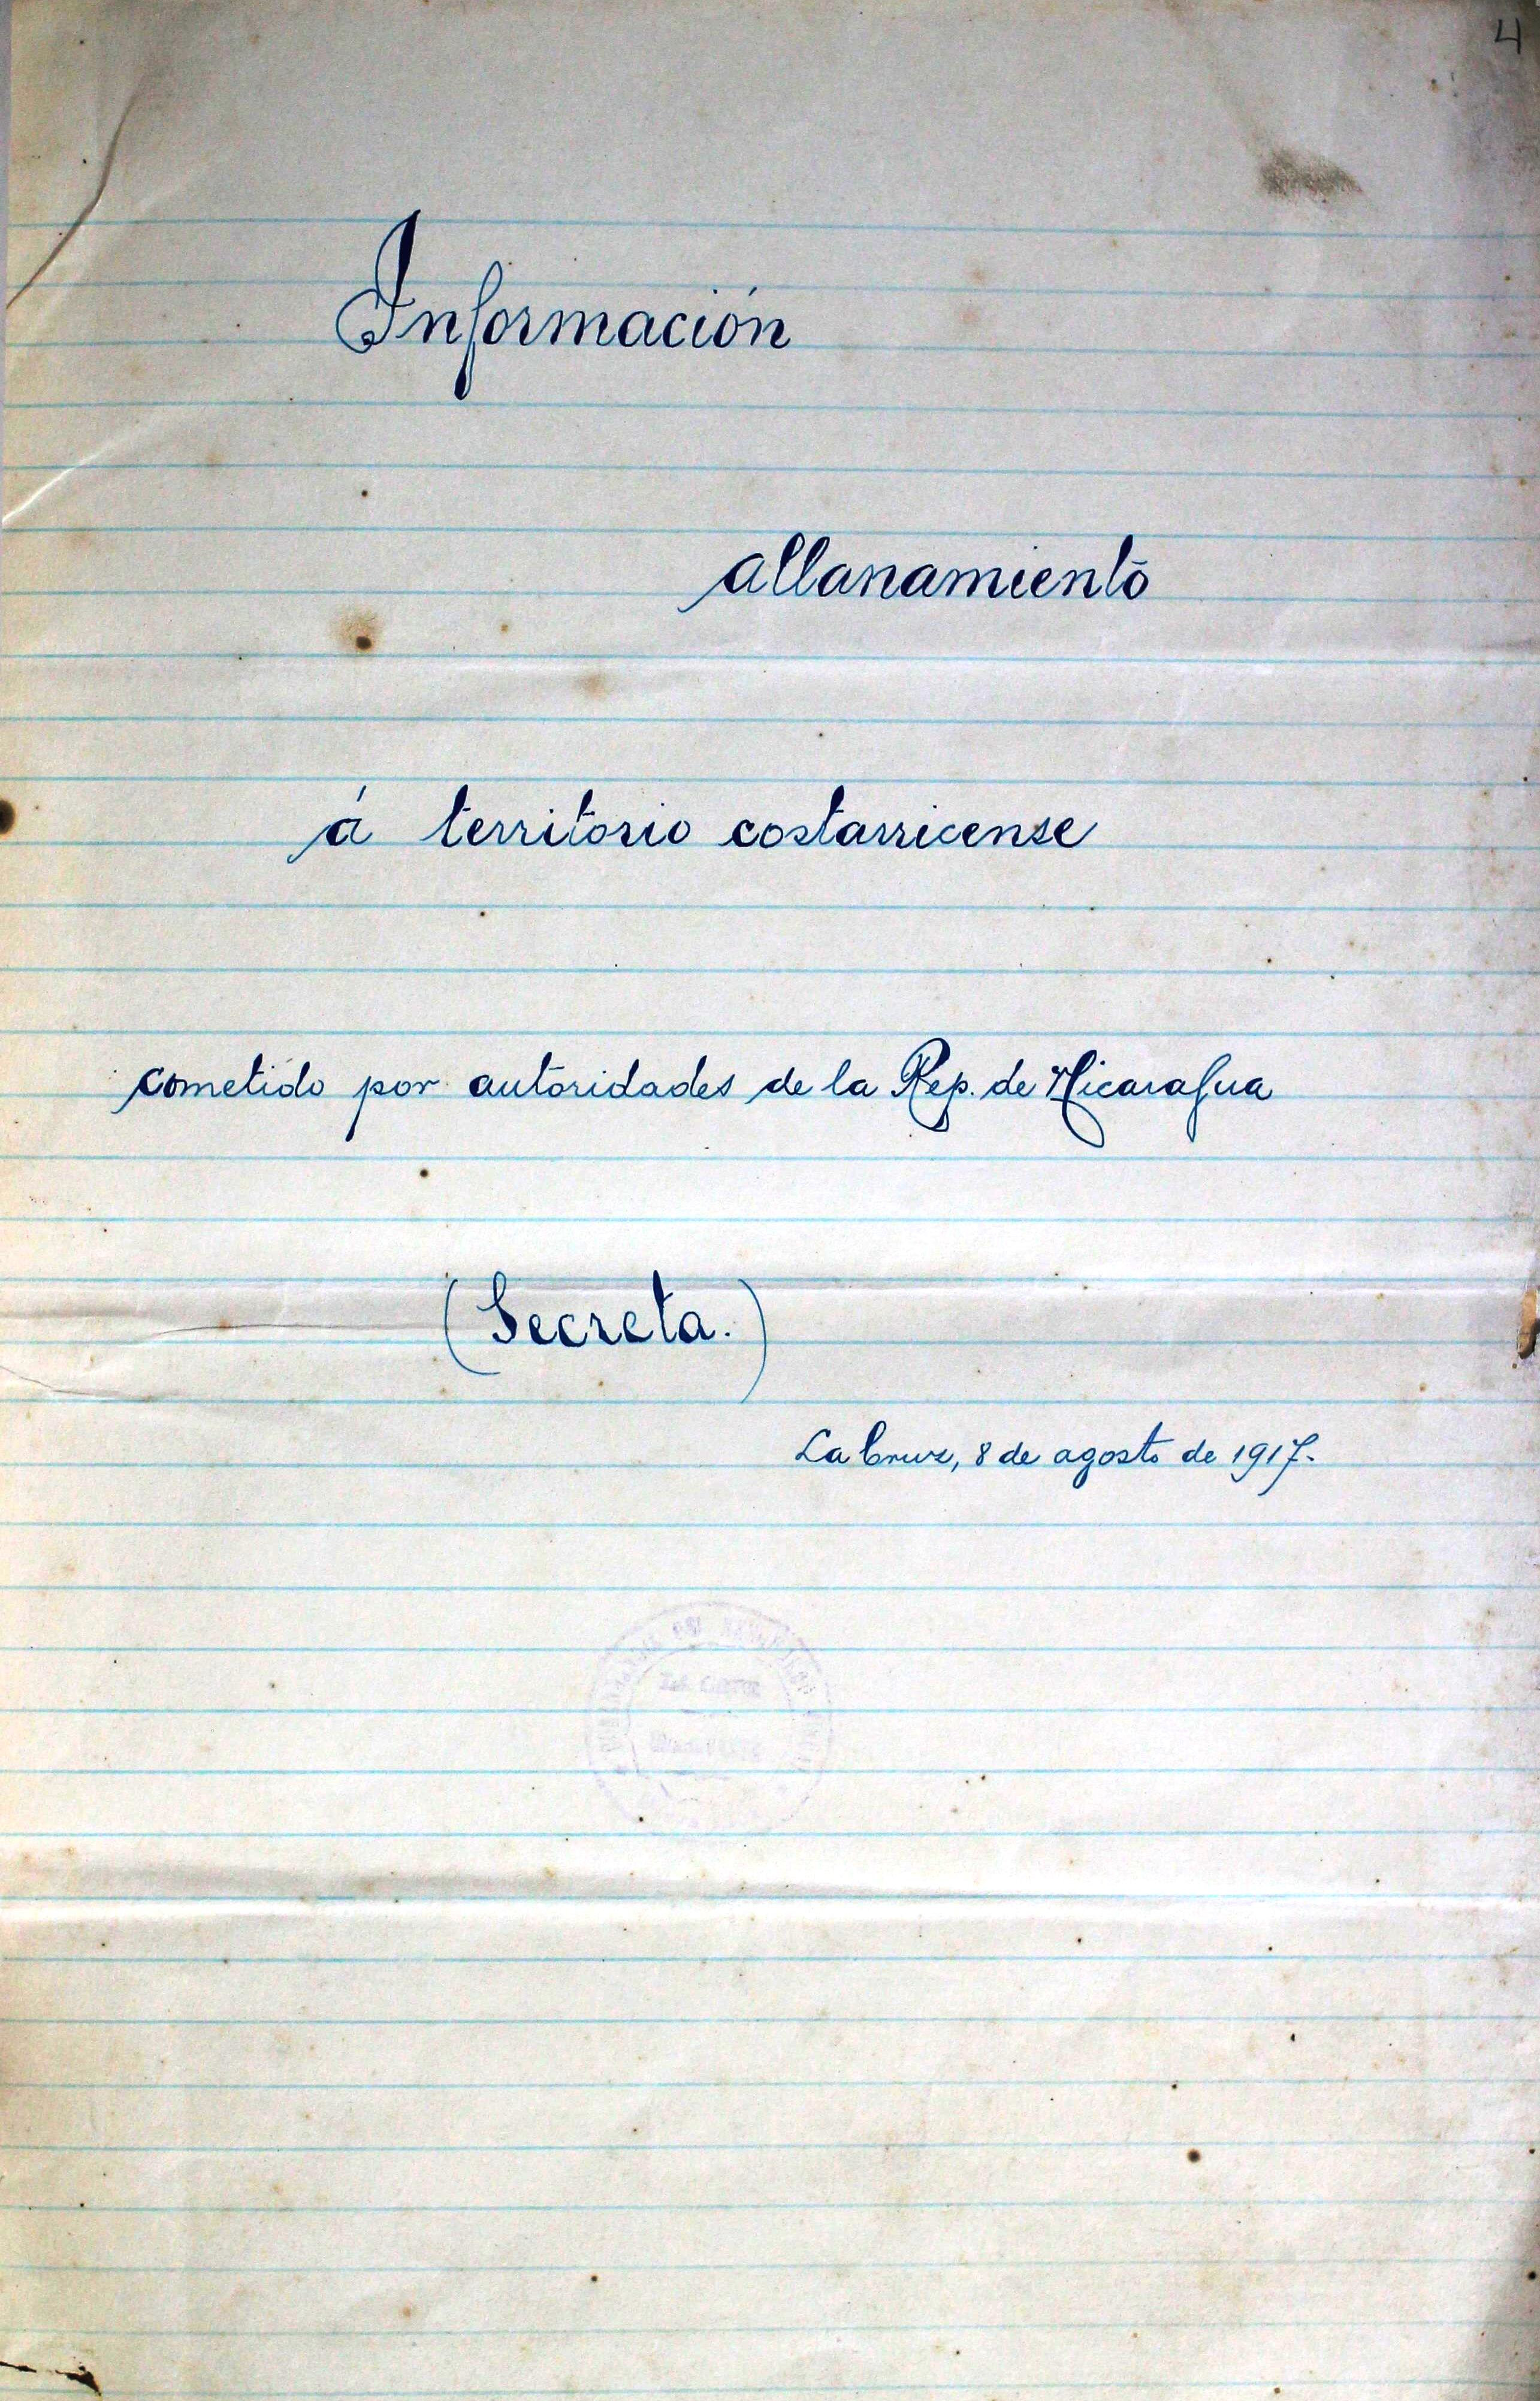 4
Información
allanamiento
á territorio costarricense
cometido por autoridades de la Rep. de Nicaragua
(Secreta.)
La Cruz, 8 de agosto de 1917.